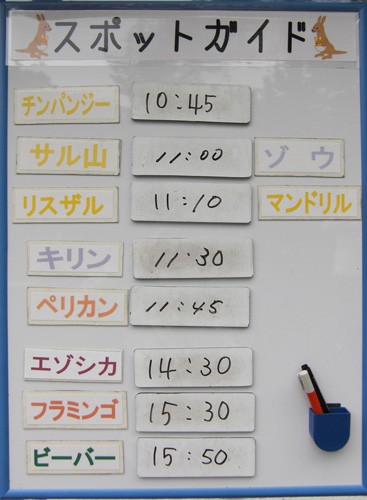 スポットガイド
チンパンジー 10:45
サル山 11:00 ゾウ
リスザル 11:10 マンドリル
キリン 11:30
ペリカン 11:45
エゾシカ 14:30
フラミンゴ 15:30
ビーバー 15:50